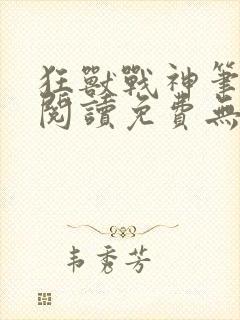 狂獸戰神筆
閱讀免費無
韦秀芳